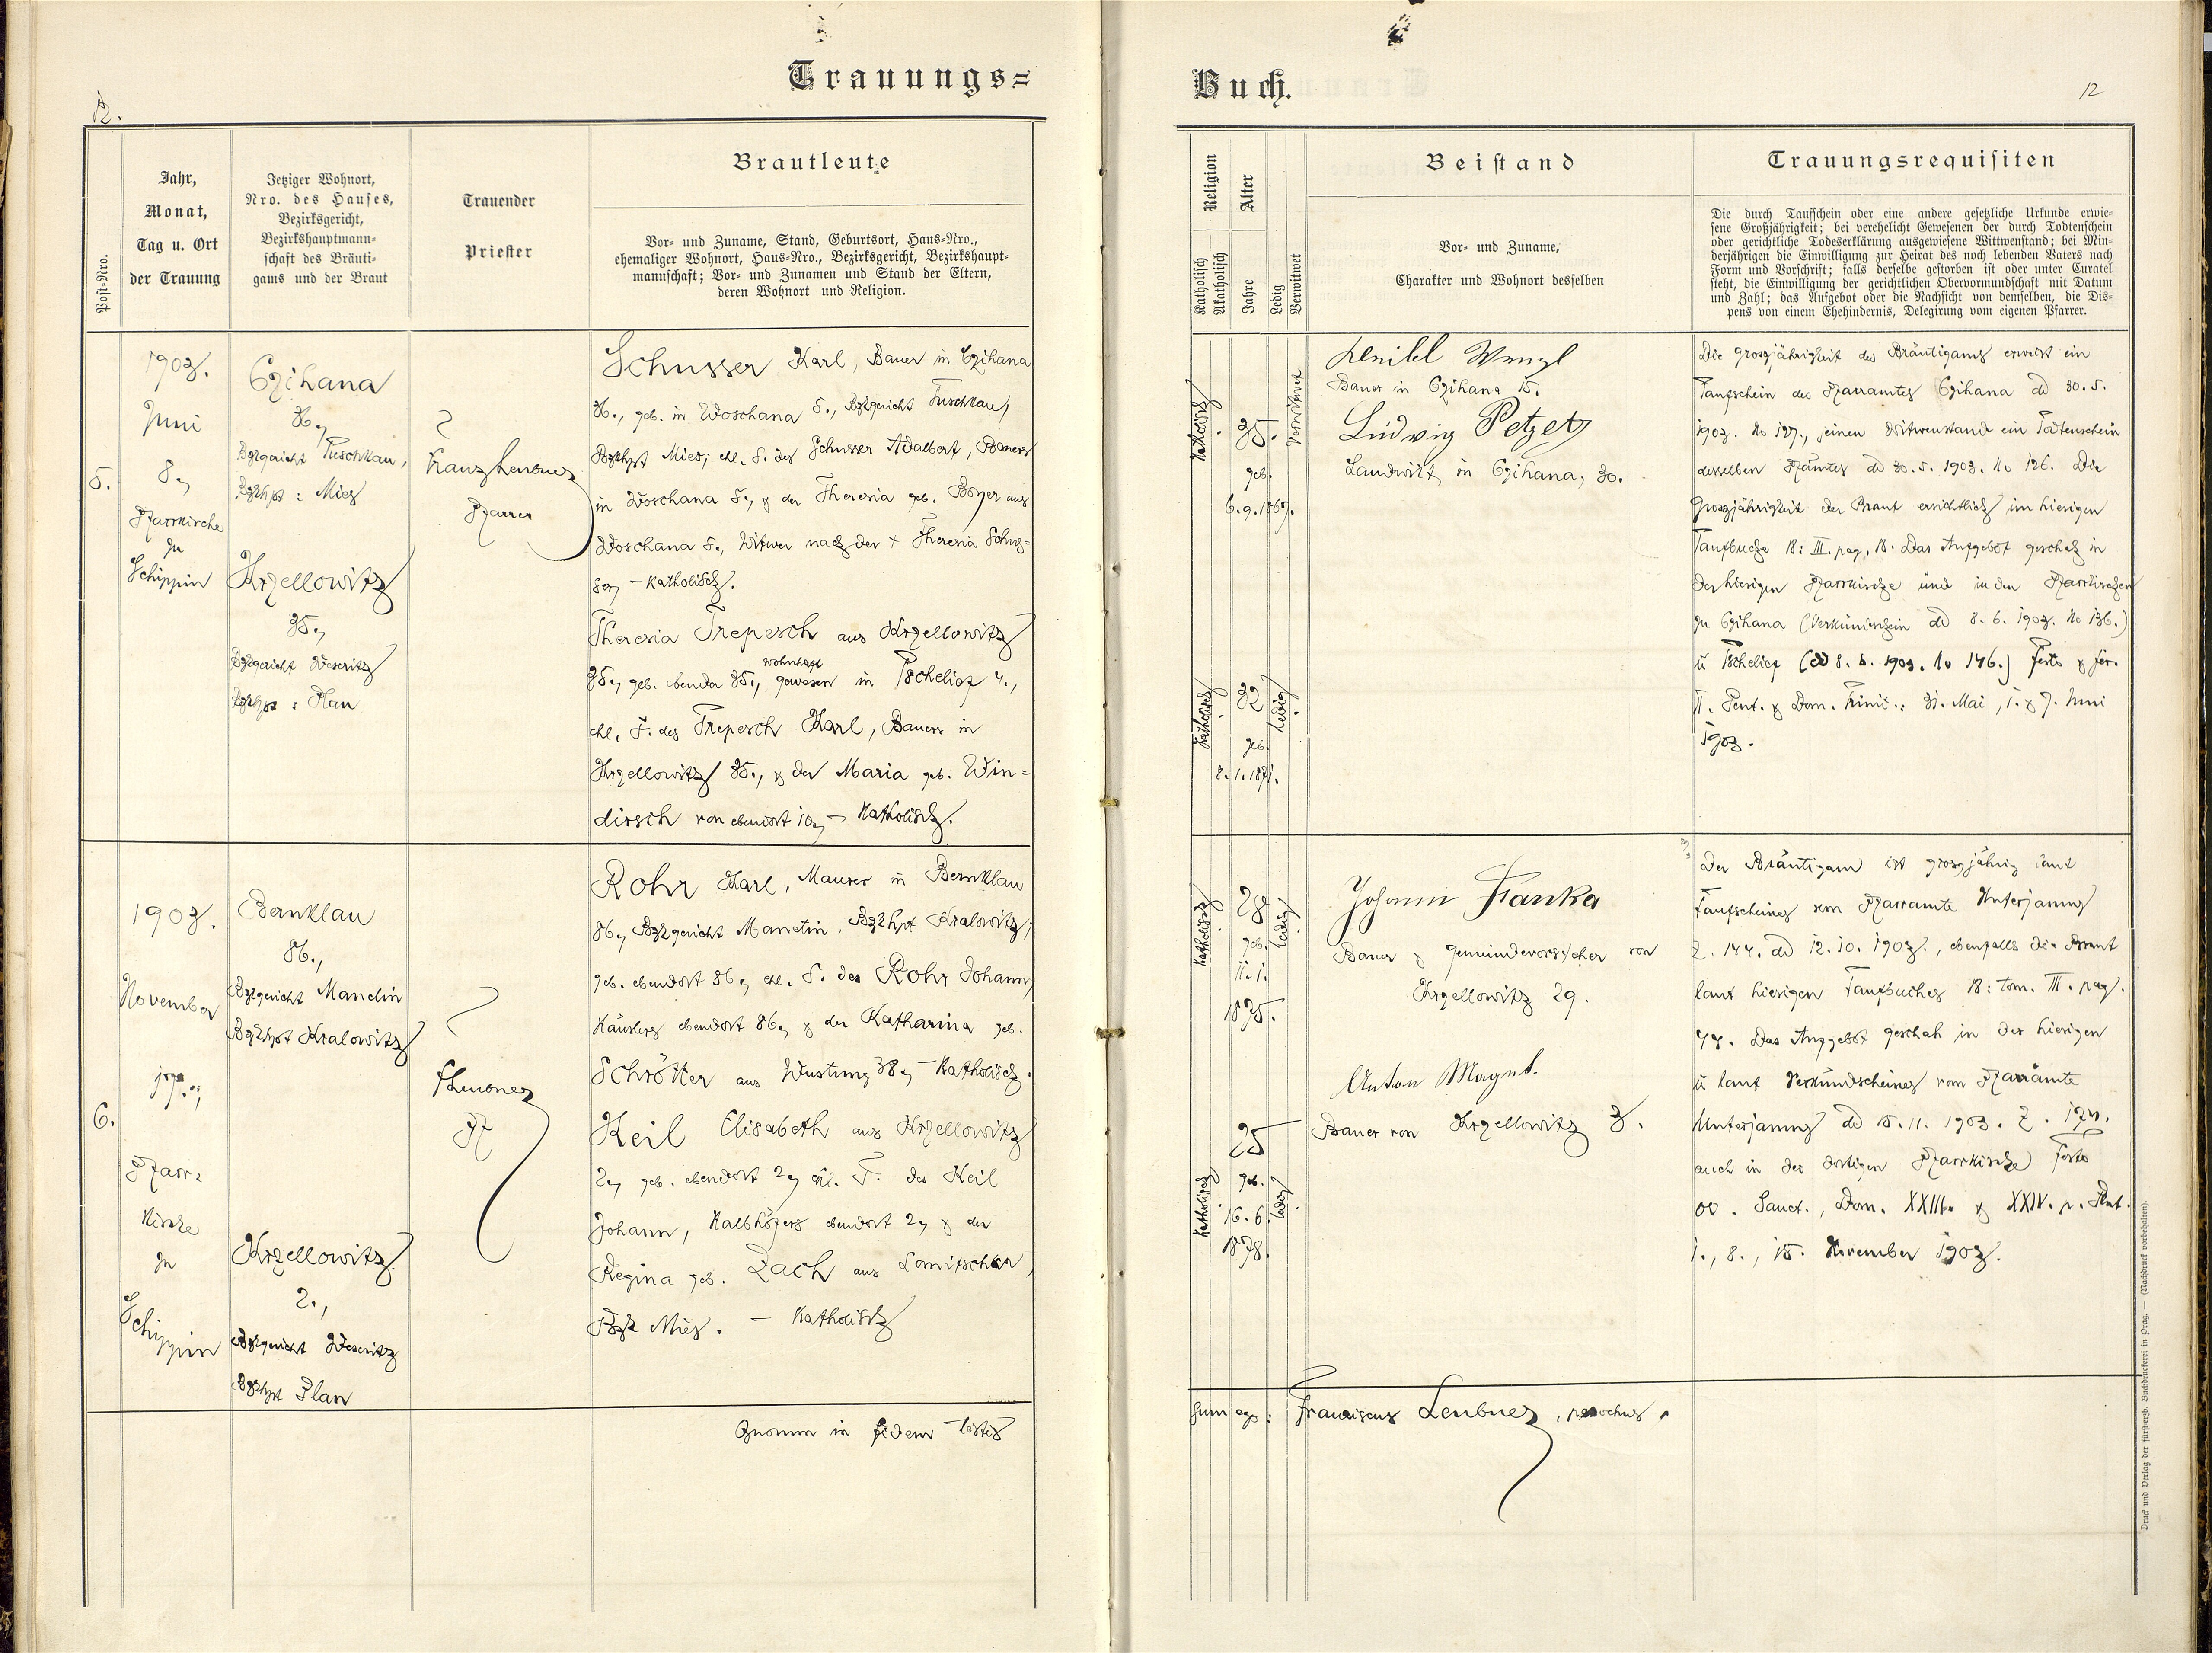 Trauungs=
12.
Post=Nro.
Jahr,
Monat,
Tag u. Ort
der Trauung
Jetziger Wohnort,
Nro. des Hauses,
Bezirksgericht,
Bezirkshauptmann=
schaft des Bräuti=
gams und der Braut
Trauender
Priester
Brautleute
Vor= und Zuname, Stand, Geburtsort, Haus=Nro.,
ehemaliger Wohnort, Haus=Nro., Bezirksgericht, Bezirkshaupt=
mannschaft; Vor= und Zunamen und Stand der Eltern,
deren Wohnort und Religion.
5.
1903.
Juni
8.,
Pfarrkirche
zu
Schippin
Czihana
36.,
Bzkgericht Tuschkau,
Bzkhpt : Mies
Krzellowitz
35.,
Bzkgericht Weseritz
Bzkhpt : Plan
Franz Leubner
Pfarrer
Schusser Karl, Bauer in Czihana
36., geb. in Woschana 5., Bzkgericht Tuschkau,
Bzkhpt Mies; ehl. S. des Schusser Adalbert, Bauers
in Woschana 5., & der Theresia geb. Boyer aus
Woschana 5., Witwer nach der + Theresia Schus=
ser, – katholisch.
Theresia Trepesch aus Krzellowitz
35., geb. ebenda 35., wohnhaft gewesen in Tschelief 4.,
ehl. T. des Trepesch Karl, Bauers in
Krzellowitz 35., & der Maria geb. Win=
dirsch von ebendort 10., – katholisch.
6.
1903.
November
17.,
Pfarr=
kirche
zu
Schippin
Bernklau
86.,
Bzkgericht Manetin
Bzkhpt Kralowitz
Krzellowitz
2.,
Bzkgericht Weseritz
Bzkhpt Plan
FLeubner
Pf
Rohr Karl, Maurer in Bernklau
86., Bzkgericht Manetin, Bzkhpt Kralowitz;
geb. ebendort 86., ehl. S. des Rohr Johann,
Häuslers ebendort 86., & der Katharina geb.
Schrötter aus Wustung 38., – katholisch.
Keil Elisabeth aus Krzellowitz
2., geb. ebendort 2., ehl. T. des Keil
Johann, Halbhöfers ebendort 2., & der
Regina geb. Zach aus Lomitschka,
Bzk Mies. – katholisch
Quorum in fidem testis
Buch.
12
Religion
Katholisch
Akatholisch
Alter
Jahre
Ledig
Verwitwet
Beistand
Vor= und Zuname,
Charakter und Wohnort desselben
Trauungsrequisiten
Die durch Taufschein oder eine andere gesetzliche Urkunde erwie=
sene Großjährigkeit; bei verehelicht Gewesenen der durch Todtenschein
oder gerichtliche Todeserklärung ausgewiesene Wittwenstand; bei Min=
derjährigen die Einwilligung zur Heirat des noch lebenden Vaters nach
Form und Vorschrift; falls derselbe gestorben ist oder unter Curatel
steht, die Einwilligung der gerichtlichen Obervormundschaft mit Datum
und Zahl; das Aufgebot oder die Nachsicht von demselben, die Dis=
pens von einem Ehehindernis, Delegirung vom eigenen Pfarrer.
katholisch.
35.
geb.
6.9.1867.
Verwitwet
Wenzl
Bauer in Czihana 15.
Ludwig Petzet
Landwirt, in Czihana, 30.
katholisch.
32
geb.
8.1.1871.
ledig.
Die Grossjährigkeit des Bräutigams erweist ein
Taufschein des Pfarramtes Czihana dd 30. 5.
1903. No 127., seinen Witwenstand ein Totenschein
desselben Pfamtes dd 30. 5. 1903. No 126. Die
Grossjährigkeit der Braut ersichtlich im hiesigen
Taufbuche 18: III. pag. 18. Das Aufgebot geschah in
der hiesigen Pfarrkirche und in den Pfarrkirchen
zu Czihana (Verkündschein dd 8. 6. 1903. No 136.)
u Tschelief (dd 8. 6. 1903. No 146.) Festo & fer.
II. Pent. & Dom. Trinit.: 31. Mai, 1. & 7. Juni
1903.
katholisch.
28
geb.
11. 1.
1875.
ledig.
Johann Franka
Bauer & Gemeindevorsteher von
Krzellowitz 29.
Anton Magnt.
Bauer von Krzellowitz 3.
katholisch.
25
geb.
16. 6.
1878.
ledig.
Der Bräutigam ist grossjährig laut
Taufscheines vom Pfarramte Unterjamny
Z. 144. dd 12. 10. 1903., ebenfalls die Braut
laut hiesigen Taufbuches 18: tom. III. pag.
44. Das Aufgebot geschah in der hiesigen
u laut Verkündscheines vom Pfarramte
Unterjamny dd 15. 11. 1903. Z.
auch in der dortigen Pfarrkirche) Festo
OO. Sanct., Dom. XXIII. & XXIV. p. Pent.
1., 8., 15. November 1903.
sum ego: Franciscus Leubner, parochus.
Druck und Verlag der fürsterzb. Buchdruckerei in Prag. — (Nachdruck vorbehalten).